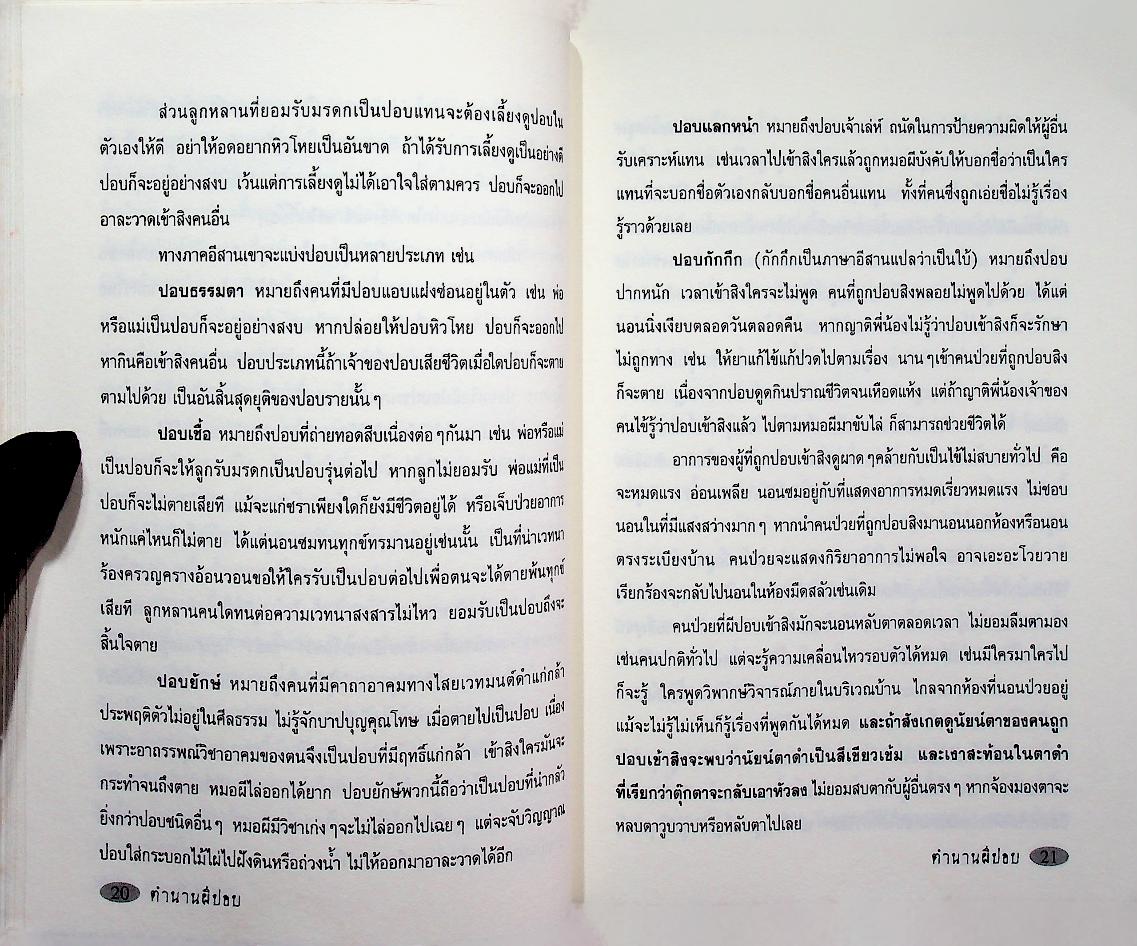 ส่วนลูกหลานที่ยอมรับมรดกเป็นปอบแทนจะต้องเลี้ยงดูปอบใน
ตัวเองให้ดี อย่าให้อดอยากหิวโหยเป็นอันขาด ถ้าได้รับการเลี้ยงดูเป็นอย่างดี
ปอบก็จะอยู่อย่างสงบ เว้นแต่การเลี้ยงดูไม่ได้เอาใจใส่ตามควร ปอบก็จะออกไป
อาละวาดเข้าสิงคนอื่น
ทางภาคอีสานเขาจะแบ่งปอบเป็นหลายประเภท เช่น
ปอบธรรมดา หมายถึงคนที่มีปอบแอบแฝงซ่อนอยู่ในตัว เช่น พ่อ
หรือแม่เป็นปอบก็จะอยู่อย่างสงบ หากปล่อยให้ปอบหิวโหย ปอบก็จะออกไป
หากินคือเข้าสิงคนอื่น ปอบประเภทนี้ถ้าเจ้าของปอบเสียชีวิตเมื่อใดปอบก็จะตาย
ตามไปด้วย เป็นอันสิ้นสุดยุติของปอบรายนั้นๆ
ปอบเชื้อ หมายถึงปอบที่ถ่ายทอดสืบเนื่องต่อๆกันมา เช่น พ่อหรือแม่
เป็นปอบก็จะให้ลูกรับมรดกเป็นปอบรุ่นต่อไป หากลูกไม่ยอมรับ พ่อแม่ที่เป็น
ปอบก็จะไม่ตายเสียที แม้จะแก่ชราเพียงใดก็ยังมีชีวิตอยู่ได้ หรือเจ็บป่วยอาการ
หนักแค่ไหนก็ไม่ตาย ได้แต่นอนซมทนทุกข์ทรมานอยู่เช่นนั้น เป็นที่น่าเวทนา
ร้องครวญครางอ้อนวอนขอให้ใครรับเป็นปอบต่อไปเพื่อตนจะได้ตายพ้นทุกข์
เสียที ลูกหลานคนใดทนต่อความเวทนาสงสารไม่ไหว ยอมรับเป็นปอบถึงจะ
สิ้นใจตาย
ปอบยักษ์ หมายถึงคนที่มีคาถาอาคมทางไสยเวทมนต์ดำแก่กล้า
ประพฤติตัวไม่อยู่ในศีลธรรม ไม่รู้จักบาปบุญคุณโทษ เมื่อตายไปเป็นปอบ เนื่อง
เพราะอาถรรพณ์วิชาอาคมของตนจึงเป็นปอบที่มีฤทธิ์แก่กล้า เข้าสิงใครมันจะ
กระทำจนถึงตาย หมอผีไล่ออกได้ยาก ปอบยักษ์พวกนี้ถือว่าเป็นปอบที่น่ากลัว
ยิ่งกว่าปอบชนิดอื่นๆ หมอผีมีวิชาเก่งๆจะไม่ไล่ออกไปเฉยๆ แต่จะจับวิญญาณ
ปอบใส่กระบอกไม้ไผ่ไปฝังดินหรือถ่วงน้ำ ไม่ให้ออกมาอาละวาดได้อีก
20 ตำนานผีปอบ
ปอบแลกหน้า หมายถึงปอบเจ้าเล่ห์ ถนัดในการป้ายความผิดให้ผู้อื่น
รับเคราะห์แทน เช่นเวลาไปเข้าสิงใครแล้วถูกหมอผีบังคับให้บอกชื่อว่าเป็นใคร
แทนที่จะบอกชื่อตัวเองกลับบอกชื่อคนอื่นแทน ทั้งที่คนซึ่งถูกเอ่ยชื่อไม่รู้เรื่อง
รู้ราวด้วยเลย
ปอบกักกึก (กักกึกเป็นภาษาอีสานแปลว่าเป็นใบ้) หมายถึงปอบ
ปากหนัก เวลาเข้าสิงใครจะไม่พูด คนที่ถูกปอบสิงพลอยไม่พูดไปด้วย ได้แต่
นอนนิ่งเงียบตลอดวันตลอดคืน หากญาติพี่น้องไม่รู้ว่าปอบเข้าสิงก็จะรักษา
ไม่ถูกทาง เช่น ให้ยาแก้ไข้แก้ปวดไปตามเรื่อง นานๆเข้าคนป่วยที่ถูกปอบสิง
ก็จะตาย เนื่องจากปอบดูดกินปราณชีวิตจนเหือดแห้ง แต่ถ้าญาติพี่น้องเจ้าของ
คนไข้รู้ว่าปอบเข้าสิงแล้ว ไปตามหมอผีมาขับไล่ ก็สามารถช่วยชีวิตได้
อาการของผู้ที่ถูกปอบเข้าสิงดูผาดๆคล้ายกับเป็นไข้ไม่สบายทั่วไป คือ
จะหมดแรง อ่อนเพลีย นอนซมอยู่กับที่แสดงอาการหมดเรี่ยวหมดแรง ไม่ชอบ
นอนในที่มีแสงสว่างมากๆ หากนำคนป่วยที่ถูกปอบสิงมานอนนอกห้องหรือนอน
ตรงระเบียงบ้าน คนป่วยจะแสดงกิริยาอาการไม่พอใจ อาจเอะอะโวยวาย
เรียกร้องจะกลับไปนอนในห้องมืดสลัวเช่นเดิม
คนป่วยที่ผีปอบเข้าสิงมักจะนอนหลับตาตลอดเวลา ไม่ยอมลืมตามอง
เช่นคนปกติทั่วไป แต่จะรู้ความเคลื่อนไหวรอบตัวได้หมด เช่นมีใครมาใครไป
ก็จะรู้ ใครพูดวิพากษ์วิจารณ์ภายในบริเวณบ้าน ไกลจากห้องที่นอนป่วยอยู่
แม้จะไม่รู้ไม่เห็นก็รู้เรื่องที่พูดกันได้หมด และถ้าสังเกตดูนัยน์ตาของคนถูก
ปอบเข้าสิงจะพบว่านัยน์ตาดำเป็นสีเขียวเข้ม และเงาสะท้อนในตาดำ
ที่เรียกว่าตุ๊กตาจะกลับเอาหัวลง ไม่ยอมสบตากับผู้อื่นตรงๆ หากจ้องมองตาจะ
หลบตาวูบวาบหรือหลับตาไปเลย
ตำนานผีปอบ 21